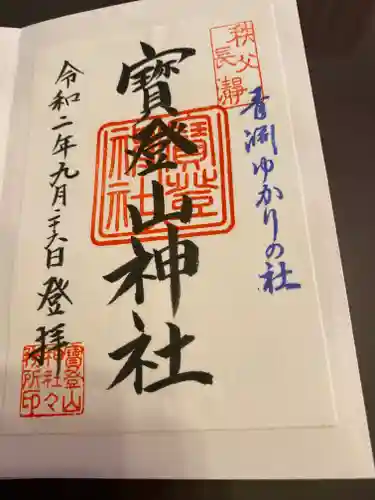 秩父
長瀞
青淵ゆかりの社
寳登山神社
寳登
山神
社
令和二年九月二十六日 登拝
寳登山
神社々
務所印